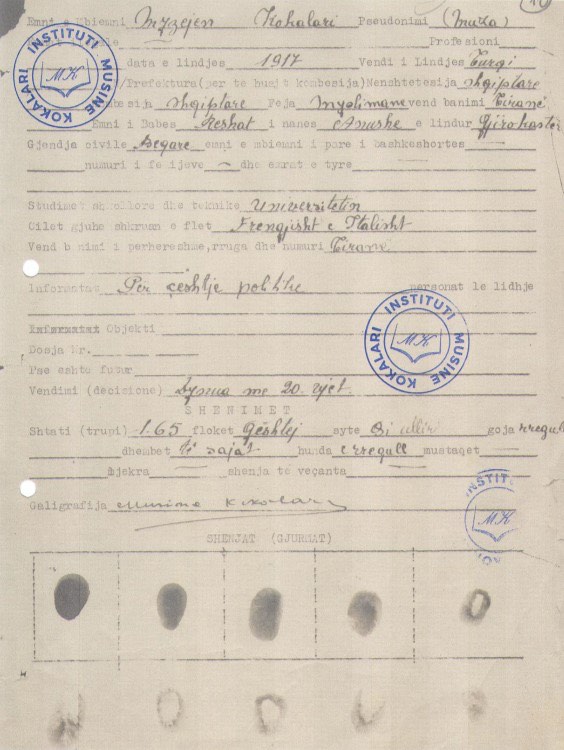 Emni e Mbiemni Myzejen Kokalari Pseudonimi (Muza)
Profesioni
data e lindjes 1917 Vendi i Lindjes Turqi
/Prefektura(per te huajt kombesija)Nenshtetesija Shqiptare
Shqiptare Feja Myslimane vend banimi Tiranë
Emni i Babes Reshat i nanes Hanushe e lindur Gjirokaster
Gjendja civile Beqare emni e mbiemni i pare i bashkeshortes
numuri i femijeve — dhe emrat e tyre
Studimet shkollore dhe teknike Universitetin
Cilet gjuhe shkruan e flet Frengjisht e Italisht
Vend banimi i perhereshme, rruga dhe numuri Tirane
Informatae Për çeshtje politike personat le lidhje
Informatat Objekti
Dosja Nr.
Pse eshte futur
Vendimi (decizione) Dynua me 20. vjet.
SHENIMET
Shtati (trupi) 1.65 floket Gështej syte Si ullir goja rregull
dhembet të sajat hunda e rregull mustaqet —
Mjekra — shenja te veçanta —
Galigrafija Musine Kokalari
SHENJAT (GJURMAT)
INSTITUTI MUSINE KOKALARI
MK
INSTITUTI MUSINE KOKALARI
MK
INSTIT
MK